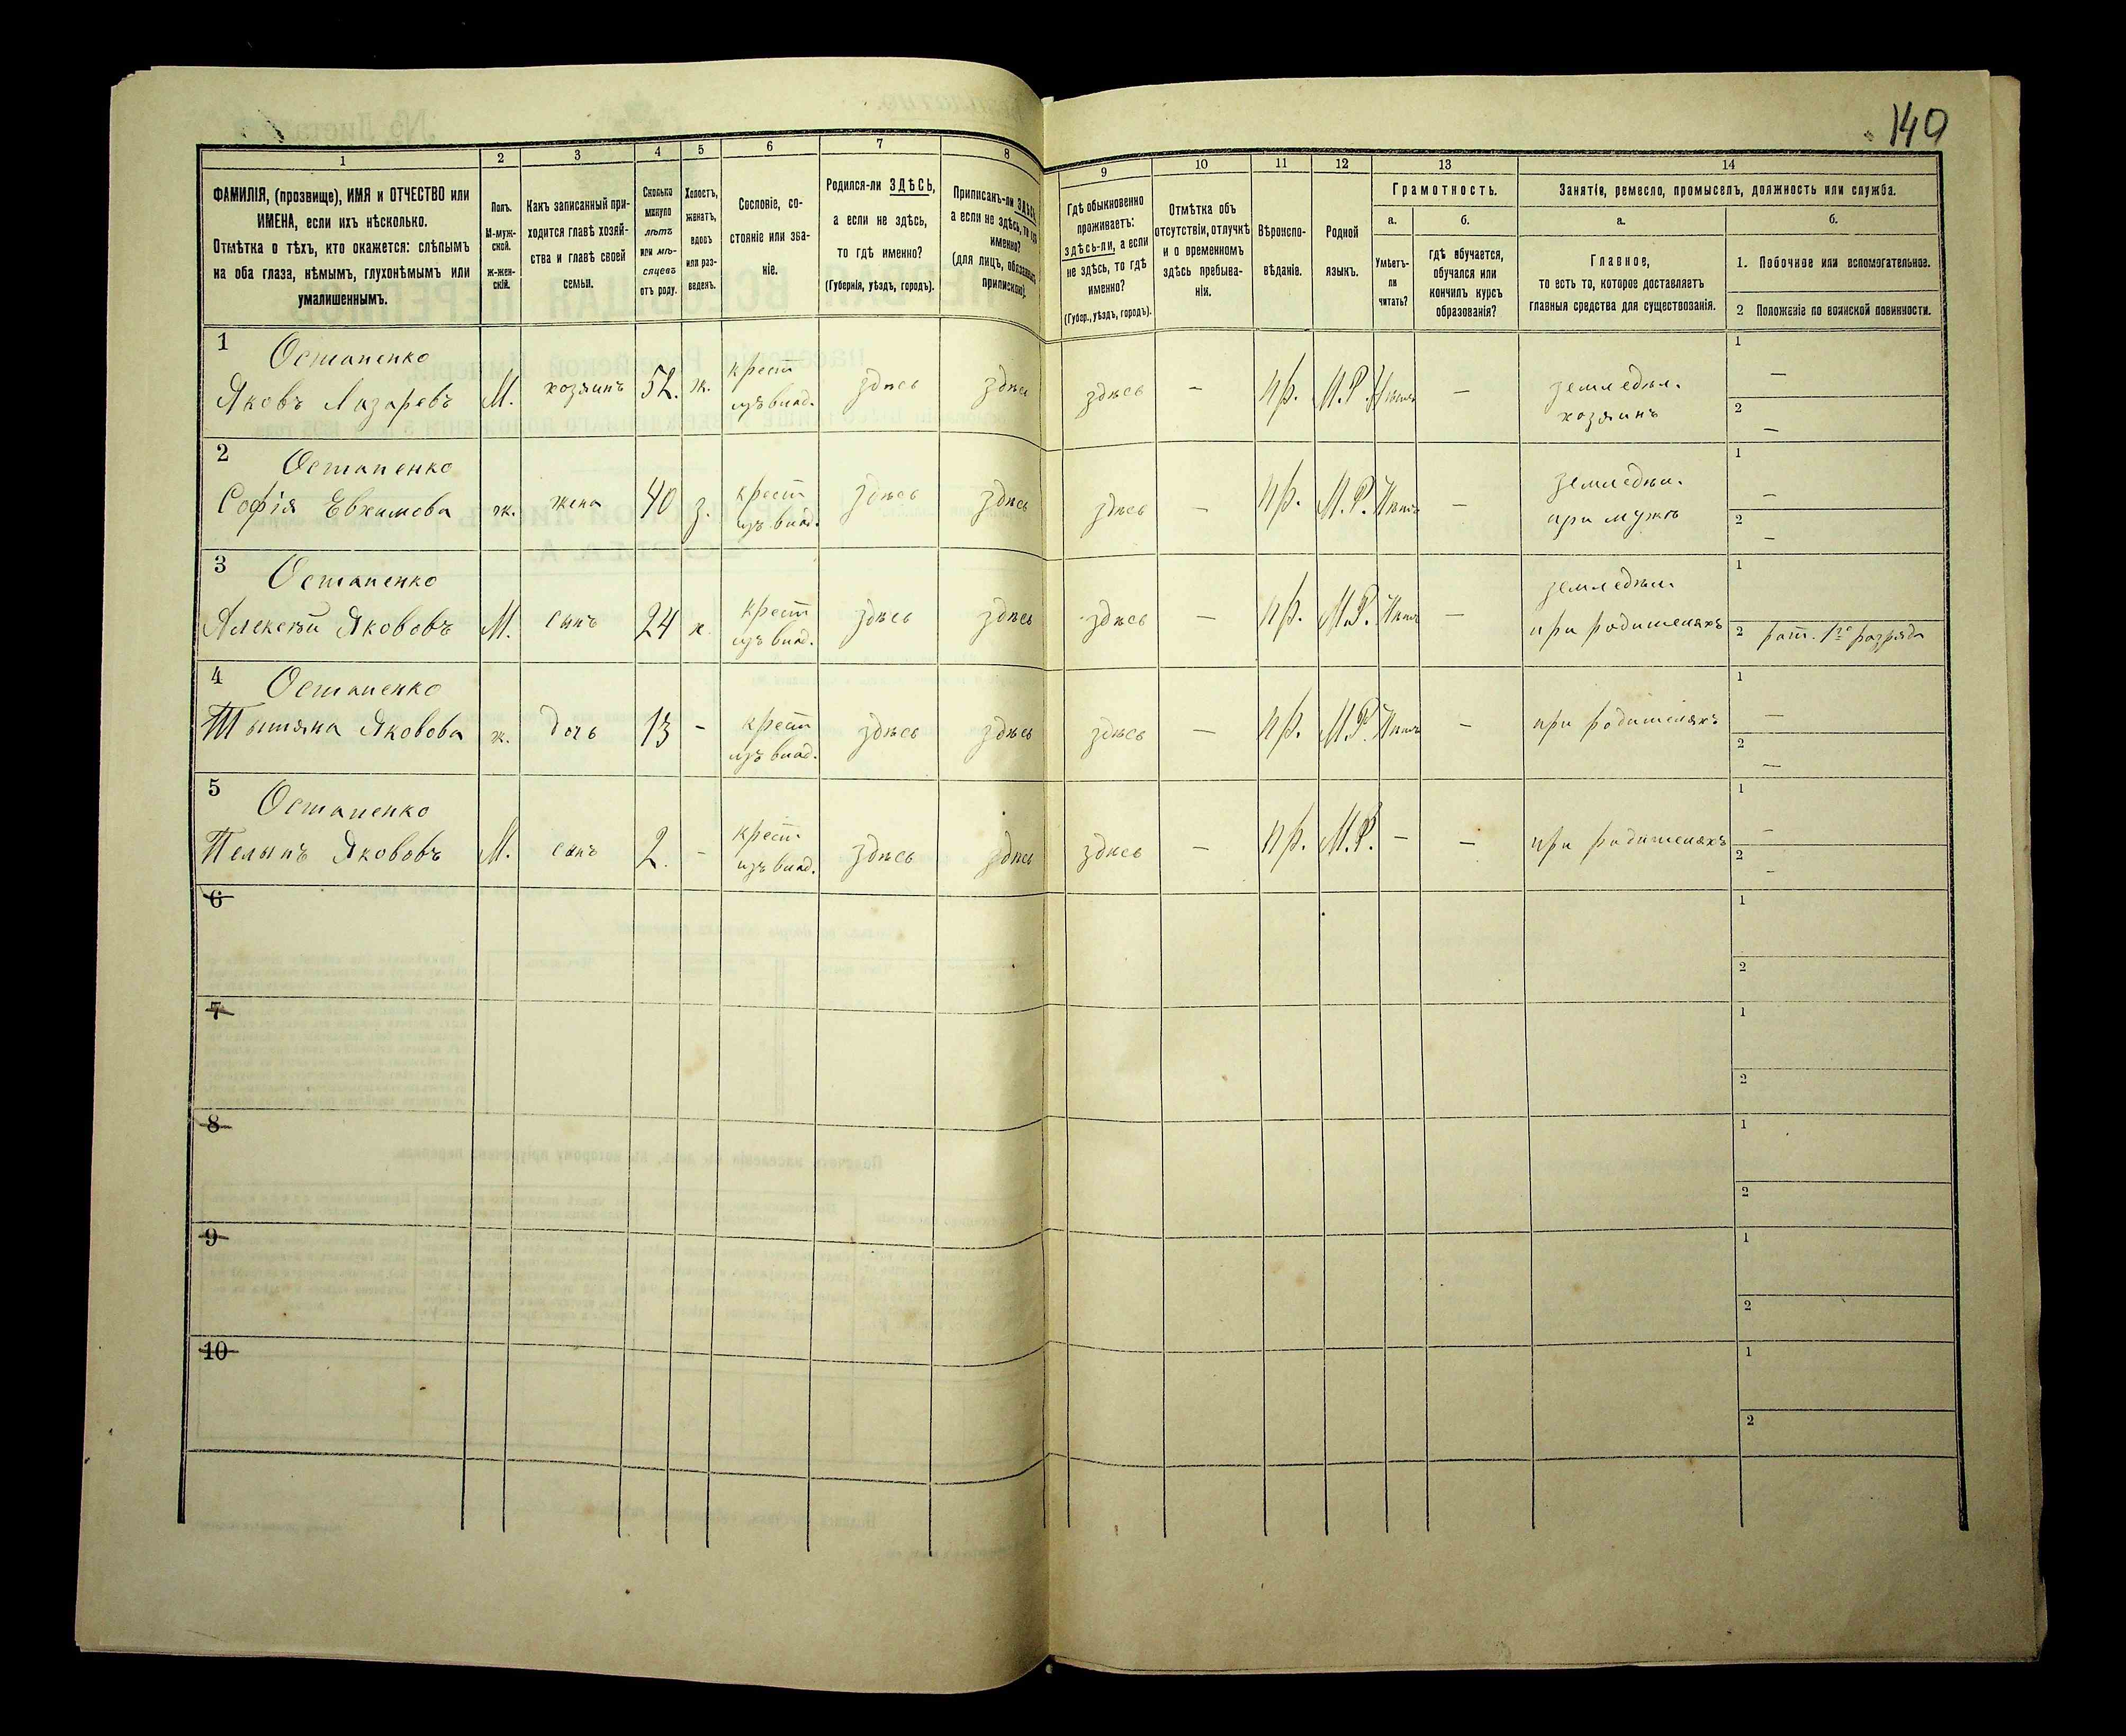 140
1 2 3 4 5 6 7 8 9 10 11 12 13 14
ФАМИЛІЯ, (прозвище), ИМЯ и ОТЧЕСТВО или
ИМЕНА, если ихъ нѣсколько.
Отмѣтка о тѣхъ, кто окажется: слѣпымъ
на оба глаза, нѣмымъ, глухонѣмымъ или
умалишеннымъ.
Полъ.
М-муж-
ской.
ж-жен-
скій.
Какъ записанный при-
ходится главѣ хозяй-
ства и главѣ своей
семьи.
Сколько
минуло
лѣтъ
или мѣ-
сяцевъ
отъ роду.
Холостъ,
женатъ,
вдовъ
или раз-
веденъ.
Сословіе, со-
стояніе или зва-
ніе.
Родился-ли ЗДѢСЬ,
а если не здѣсь,
то гдѣ именно?
(Губернія, уѣздъ, городъ).
Приписанъ-ли ЗДѢСЬ,
а если не здѣсь, то гдѣ
именно?
(для лицъ, обязанныхъ
припискою).
Гдѣ обыкновенно
проживаетъ:
здѣсь-ли, а если
не здѣсь, то гдѣ
именно?
(Губер., уѣздъ, городъ).
Отмѣтка объ
отсутствіи, отлучкѣ
и о временномъ
здѣсь пребыва-
ніи.
Вѣроиспо-
вѣданіе.
Родной
языкъ.
Грамотность.
а. б.
Умѣетъ-
ли
читать?
гдѣ обучается,
обучался или
кончилъ курсъ
образованія?
Занятіе, ремесло, промыселъ, должность или служба.
а. б.
Главное,
то есть то, которое доставляетъ
главныя средства для существованія.
1. Побочное или вспомогательное.
2 Положеніе по воинской повинности.
1 Остапенко
Яковъ Лазаревъ М. хозяинъ 52. ж. крест. изъ влад. здѣсь здѣсь здѣсь — пр. М.Р. Нѣтъ — земледѣл. хозяинъ 1 — 2 —
2 Остапенко
Софія Евхимова ж. жена 40 з. крест. изъ влад. здѣсь здѣсь здѣсь — пр. М.Р. Нѣтъ — земледѣл. при мужѣ 1 — 2 —
3 Остапенко
Алексѣй Якововъ М. сынъ 24 х. крест. изъ влад. здѣсь здѣсь здѣсь — пр. М.Р. Нѣтъ — земледѣл. при родителяхъ 1 2 рат. 1го разряда
4 Остапенко
Татьяна Яковова ж. дочь 13 - крест. изъ влад. здѣсь здѣсь здѣсь — пр. М.Р. Нѣтъ — при родителяхъ 1 — 2 —
5 Остапенко
Якововъ М. сынъ 2. - крест. изъ влад. здѣсь здѣсь здѣсь — пр. М.Р. — — при родителяхъ 1 — 2 -
6 1 2
7 1 2
8 1 2
9 1 2
10 1 2